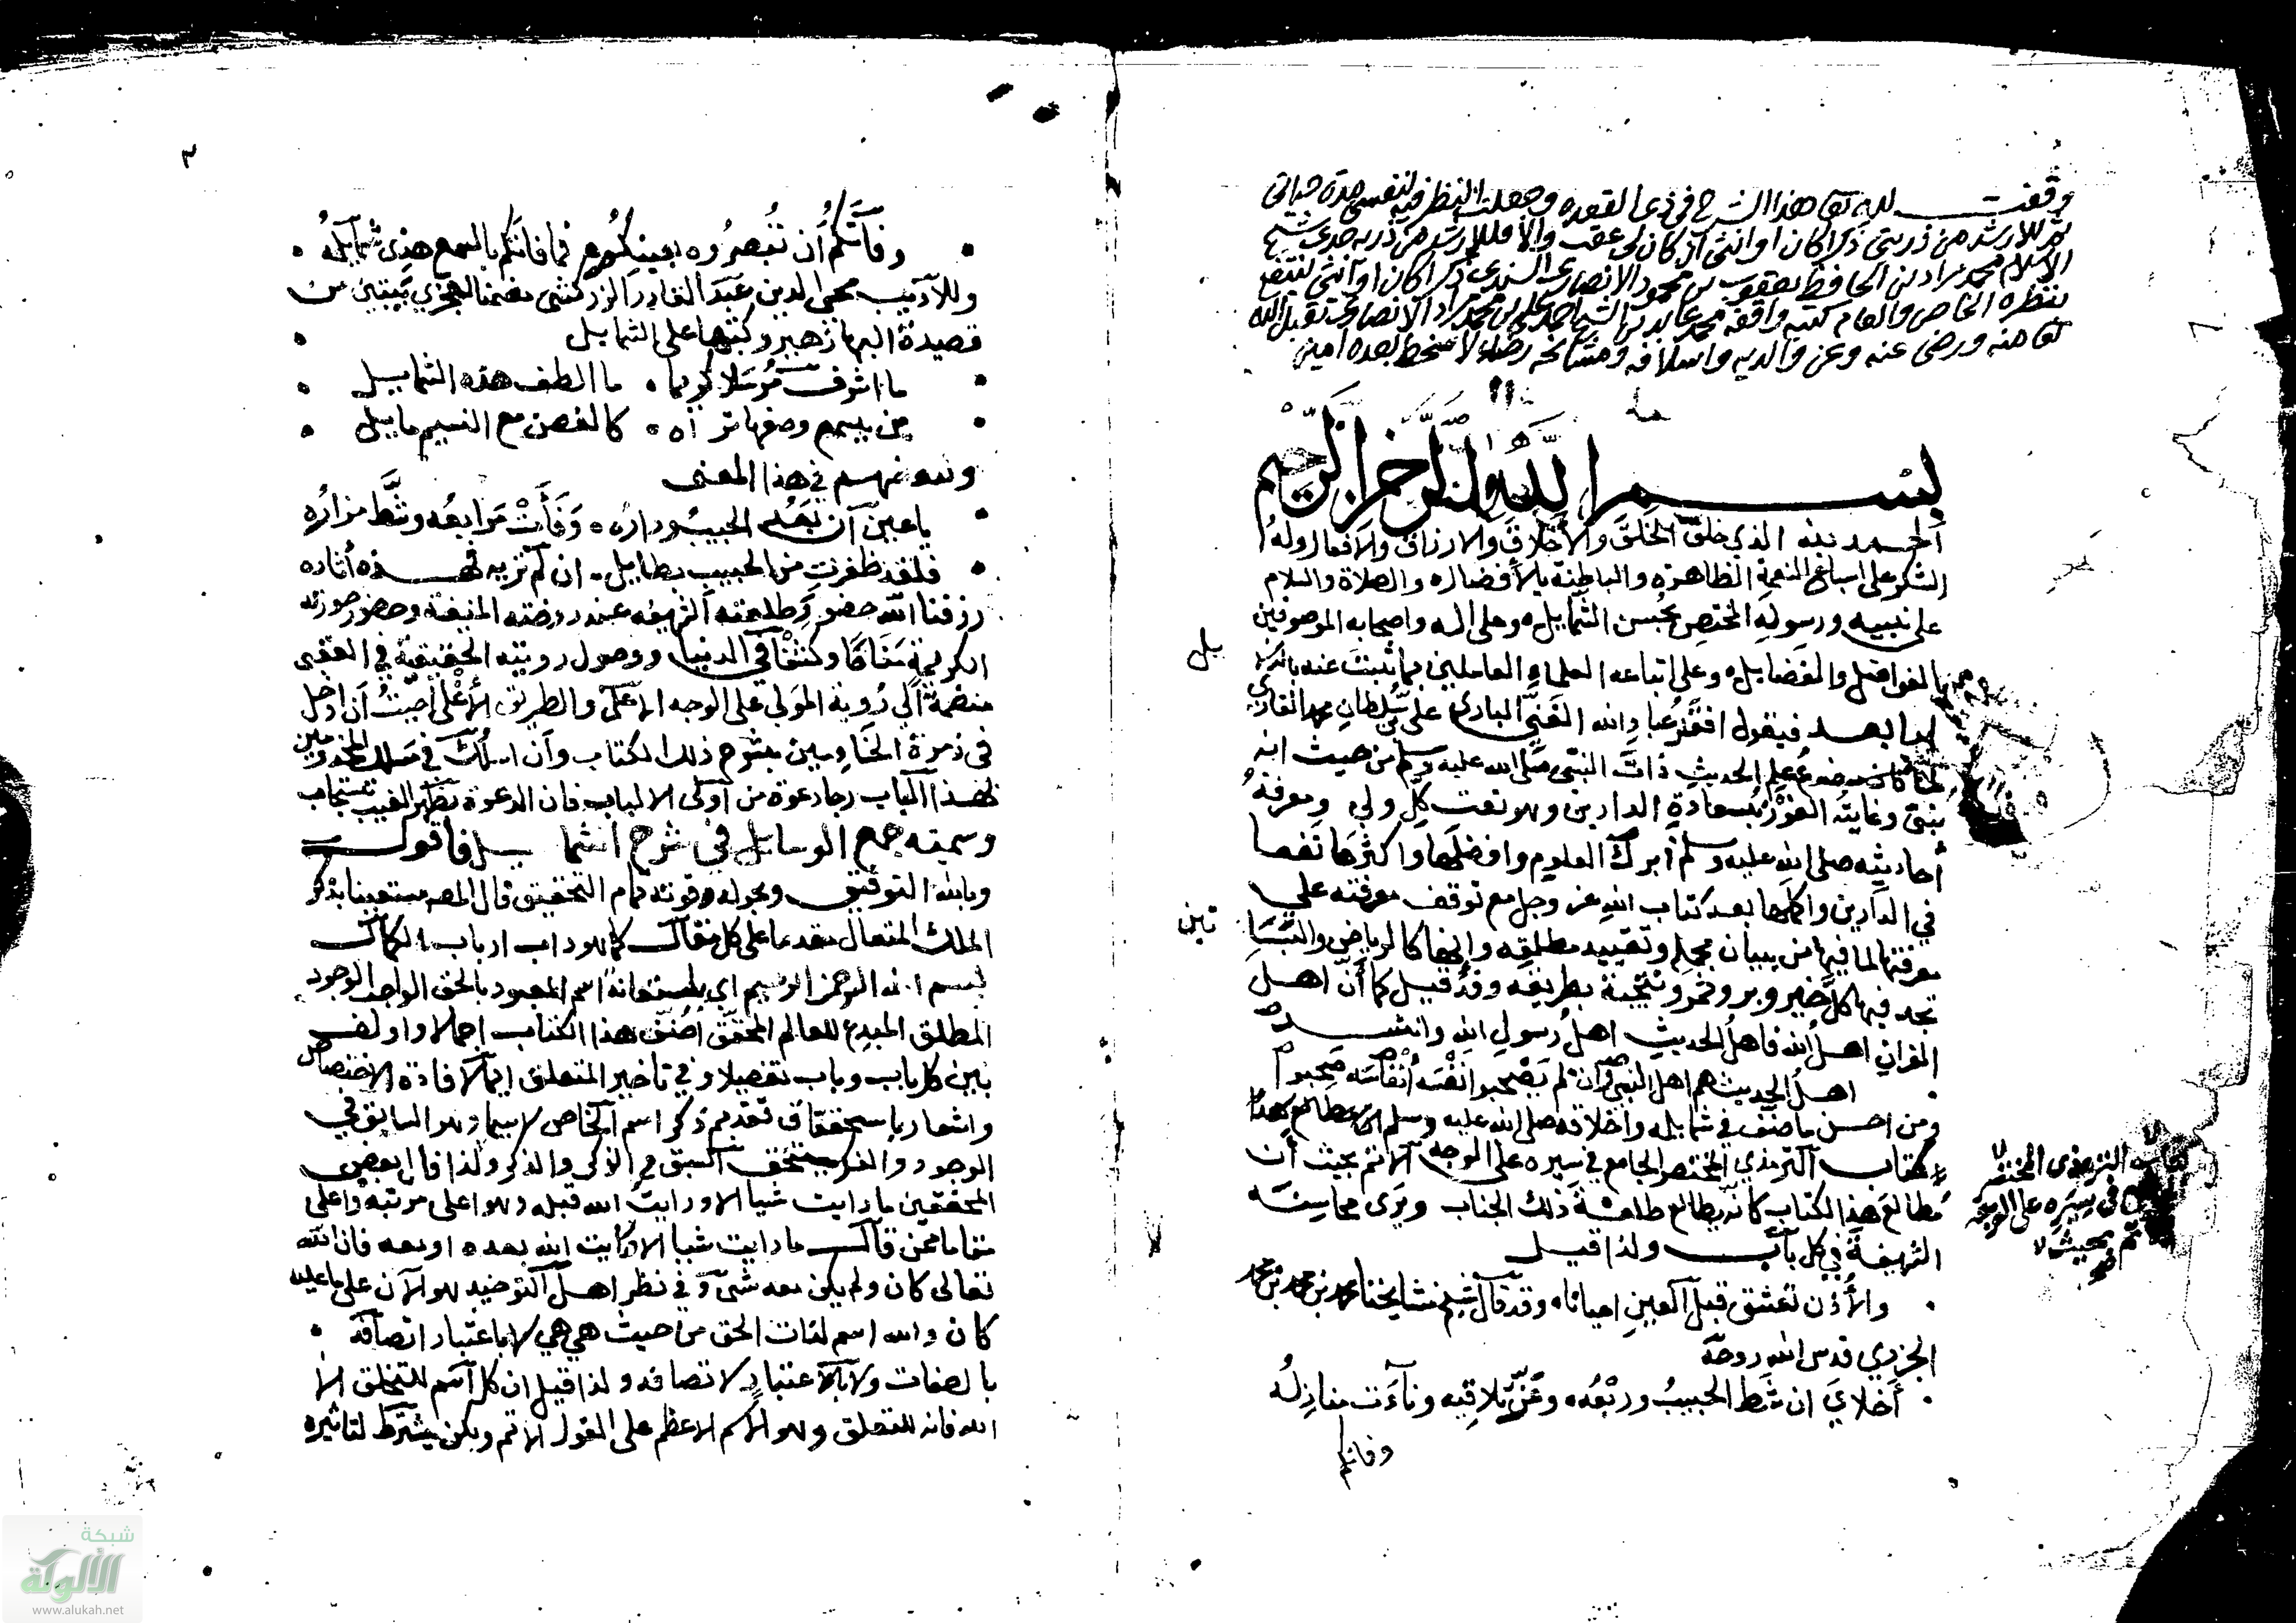 وقفت لله تعالى هذا الشرح في ذي القعده وجعلت النظر فيه لنفسي مدة حياتي
ثم للارشد من ذريتي ذكرا كان او انثى ان كان لي عقب والا فللارشد من ذرية جدي شيخ
الاسلام محمد مراد بن الحافظ يعقوب بن محمود الانصاري السندي ذكرا كان او انثى لينتفع
بنظره الخاص والعام كتبه واقفه محمد عابد بن الشيخ احمد علي بن محمد مراد الانصاري تقبل الله
تعالى منه ورضي عنه وعن والديه واسلافه ومشايخه رضاء لا سخط بعده امين
بسم الله الرحمن الرحيم
الحمد لله الذي خلق الخلق والأخلاق والارزاق والافعال وله
الشكر على اسباغ النعمة الظاهرة والباطنة بالأفضال والصلاة والسلام
على نبيه ورسوله المختص بحسن الشمايل وعلى اله واصحابه الموصوفين
بالفواضل والفضايل وعلى اتباعه العلماء العاملين بما ثبت عنه
اما بعد فيقول افقر عباد الله الغني الباري علي بن سلطان محمد القاري
لما كان موضوع علم الحديث ذات النبي صلى الله عليه وسلم من حيث انه
نبي وغايته الفوز بسعادة الدارين وهو نعت كل ولي ومعرفة
أحاديثه صلى الله عليه وسلم أبرك العلوم وافضلها واكثرها نفعا
في الدارين واكملها بعد كتاب الله عز وجل مع توقف معرفته على
معرفتها لما فيها من بيان مجمله وتقييد مطلقه وانها كالرياض والبسا
تين
تجد فيها كل خير وبر وثمر ونتيجة بطريقه وقد قيل كما أن اهل
القران اهل الله فاهل الحديث اهل رسول الله وانشد
اهل الحديث هم اهل النبي وان لم يصحبوا نفسه أنفاسه صحبوا
ومن احسن ما صنف في شمايله واخلاقه صلى الله عليه وسلم
كتاب الترمذي المختصر الجامع في سيره على الوجه الاتم بحيث أن
مطالع هذا الكتاب كانه يطالع طلعة ذلك الجناب ويرى محاسنه
الشريفة في كل باب ولذا قيل
والأذن تعشق قبل العين احيانا وقد قال شيخ مشايخنا محمد بن محمد بن محمد
الجزري قدس الله روحه
أخلاي ان شط الحبيب وربعه وعز تلاقيه وناءت منازله
وفاتكم
وفاتكم أن تبصروه بعينكم فما فاتكم بالسمع هذي شمايله
وللأديب محي الدين عبد القادر الزركشي مضمنا لعجزي بيتين من
قصيدة البها زهير وكتبها على الشمايل
ما اشرف مرسلا كريما ما الطف هذه الشمايل
من يسمع وصفها تراه كالغصن مع النسيم مايل
ولبعضهم في هذا المعنى
يا عين ان بعد الحبيب وداره ونأت مرابعه وشط مزاره
فلقد ظفرت من الحبيب بطايل ان لم تريه فهذه أثاره
رزقنا الله حضور طلعته الشريفه عند روضته المنيفة وحضور صورته
الكريمة مناما وكشفا في الدنيا ووصول رويته الحقيقية في العقبى
منضمة الى رؤية المولى على الوجه الاعلى والطريق الأغلى أحببت أن ادخل
في زمرة الخادمين بشرح ذلك الكتاب وأن اسلك في مسلك المخدومين
لهذا الباب رجا دعوة من أولى الالباب فان الدعوة بظهر الغيب تستجاب
وسميته جمع الوسايل في شرح الشمايل فاقول
وبالله التوفيق وبحوله وقوته تمام التحقيق قال المص مستعينا بذكر
الملك المتعال مقدما على كل مقال كما هو داب ارباب الكمال
بسم الله الرحمن الرحيم اي باستعانة اسم المعبود بالحق الواجب الوجود
المطلق المبدع للعالم المحقق اصنف هذا الكتاب اجمالا واولف
بين كل باب وباب تفصيلا وفي تأخير المتعلق ايما لافادة الاختصاص
واشعار باستحقاق تقديم ذكر اسم الخاص لا سيما وهو السابق في
الوجود والفكر فيستحق السبق في الذكر والذكر ولذا قال بعض
المحققين ما رايت شيا الا ورايت الله قبله وهو اعلى مرتبة واغلى
مقاما ممن قال ما رايت شيا الا رايت الله بعده او معه فان الله
تعالى كان ولم يكن معه شيء وفي نظر اهل التوحيد هو الآن على ما عليه
كان والله اسم لذات الحق من حيث هي هي لا باعتبار اتصافه
بالصفات ولا بالاعتبار لا تصافه ولذا قيل ان كل اسم للتخلق الا
الله فانه للتعلق وهو الاسم الاعظم على القول الاتم ولكن يشترط لتاثيره
شبكة
الألوكة
www.alukah.net